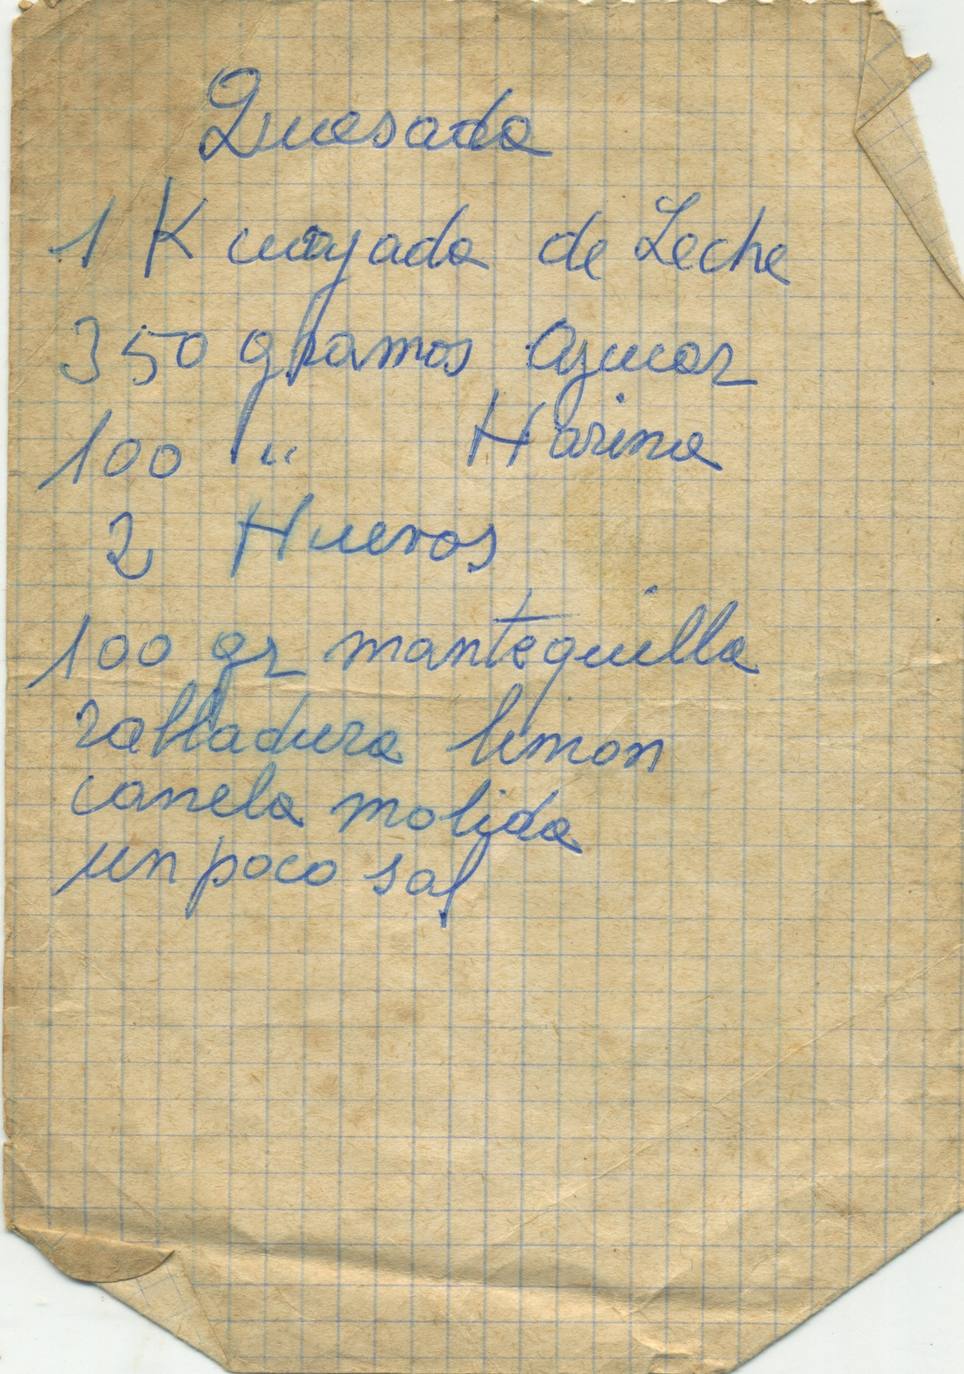 Quesada
1 K cuajada de Leche
350 gramos Azucar
100 " Harina
2 Huevos
100 gr mantequilla
ralladura limon
canela molida
un poco sal